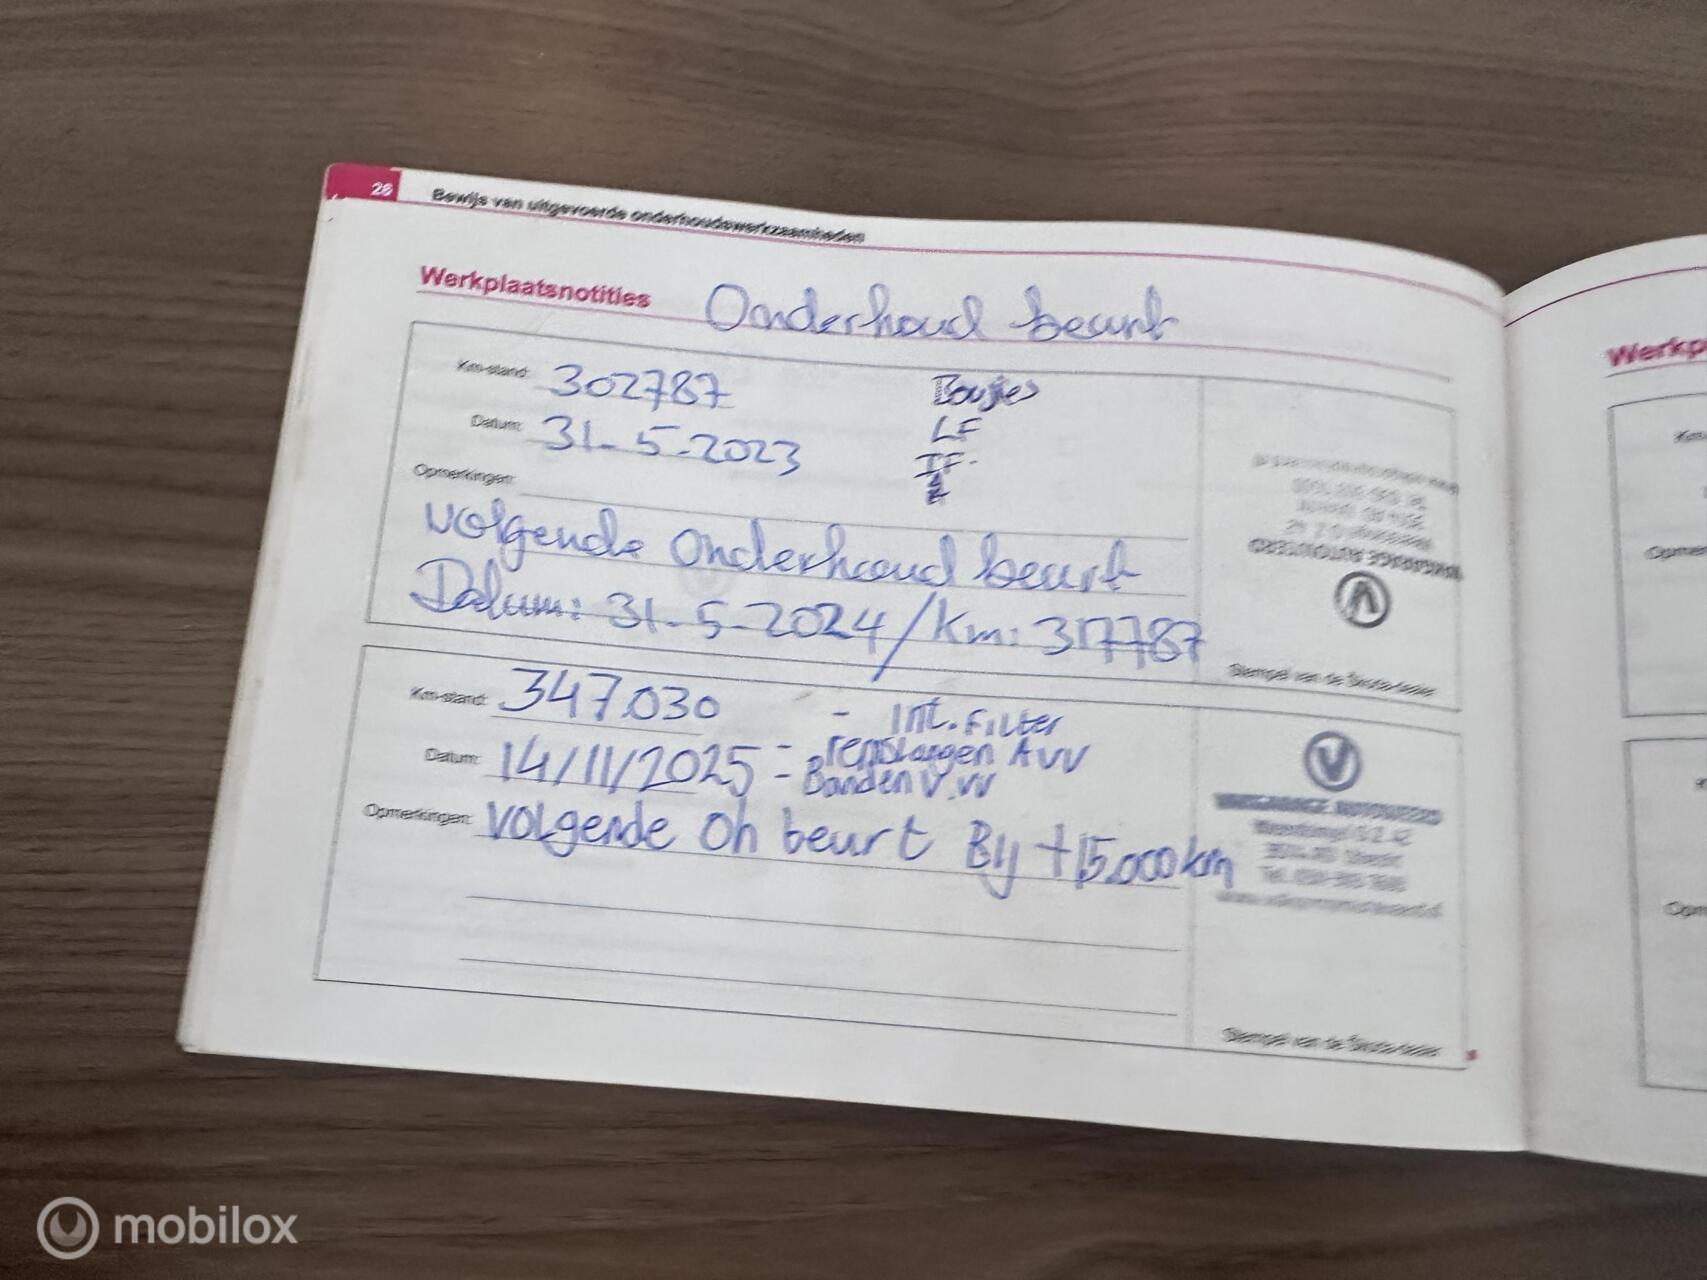 28 Bewijs van uitgevoerde onderhoudswerkzaamheden
Werkplaatsnotities Onderhoud beurt
Km-stand: 302787 Bougies
Datum: 31-5-2023 LF
IF.
Opmerkingen:
volgende Onderhoud beurt
Datum: 31-5-2024/Km: 317787
Stempel van de Škoda-dealer
Km-stand: 347.030 - Int. Filter
Datum: 14/11/2025 - remslangen AVV
- Banden V.VV
Opmerkingen: volgende Oh beurt Bij +15.000km
VAKGARAGE
Stempel van de Škoda-dealer
Werkp
mobilox